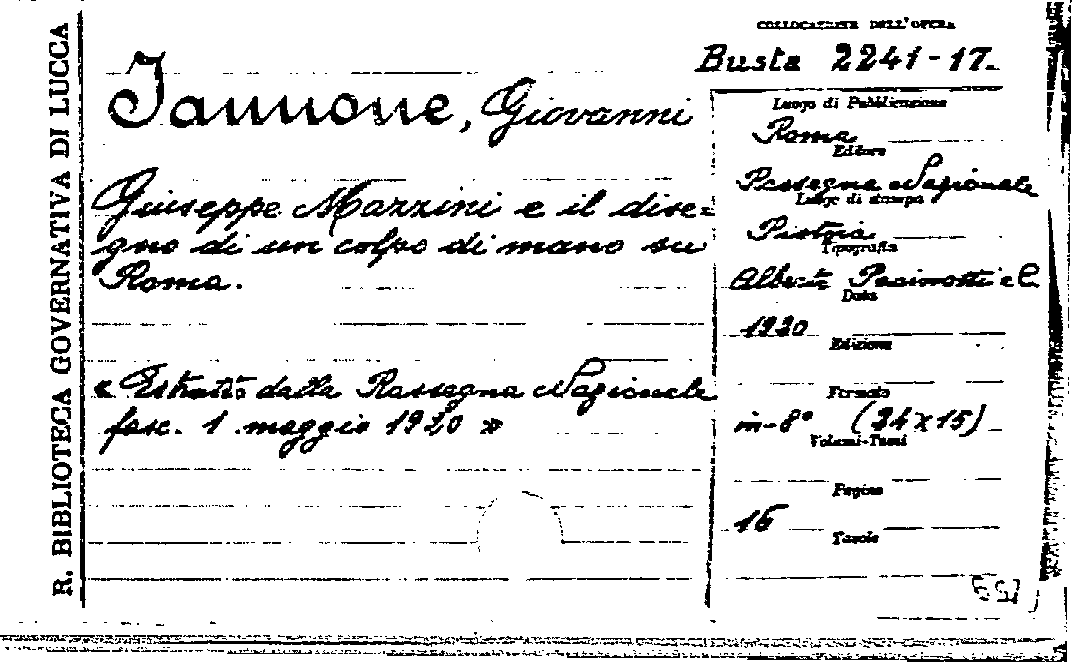 R. BIBLIOTECA GOVERNATIVA DI LUCCA
COLLOCAZIONE DELL'OPERA
Busta 2241-17.
Iannone, Giovanni
Giuseppe Mazzini e il dise=
gno di un colpo di mano su
Roma.
« Estratto dalla Rassegna Nazionale
fasc. 1 maggio 1920 »
Luogo di Pubblicazione
Roma
Editore
Rassegna Nazionale
Luogo di stampa
Pistoia
Tipografia
Alberto Pacinotti e C.
Data
1920
Edizione
Formato
in-8° (24x15)
Volumi-Tomi
Pagine
16
Tavole